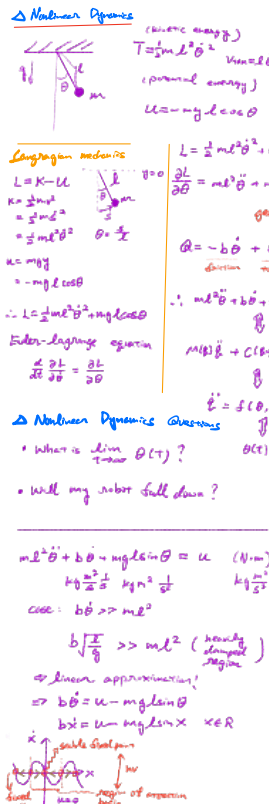 △ Nonlinear Dynamics
(kinetic energy)
T = ½ m l² θ̇²
g l
θ m
(potential energy)
U = -mg l cosθ
Langragian mechanics
L = K - U
K = ½ m v²
= ½ m ṡ²
= ½ m l² θ̇²
θ = s/l
l y=0
θ m
s
u = mgy
= -mg l cosθ
∴ L = ½ m l² θ̇² + mg l cosθ
Euler-lagrange equation
d/dt ∂L/∂θ̇ = ∂L/∂θ
L = ½ m l² θ̇² +
= m l² θ̈ +
Q = -bθ̇ +
friction
∴ m l² θ̈ + bθ̇ +
θ(t)
△ Nonlinear Dynamics Questions
• What is lim θ(t) ?
• Will my robot fall down ?
m l² θ̈ + bθ̇ + mg l sinθ = u (N·m)
case: bθ̇ >> m l²
b√(l/g) >> m l² (heavily damped region)
⇒ linear approximation!
⇒ bθ̇ = u - mg l sinθ
bẋ = u - mg l sin x x∈R
ẋ
x
fixed
region of attraction